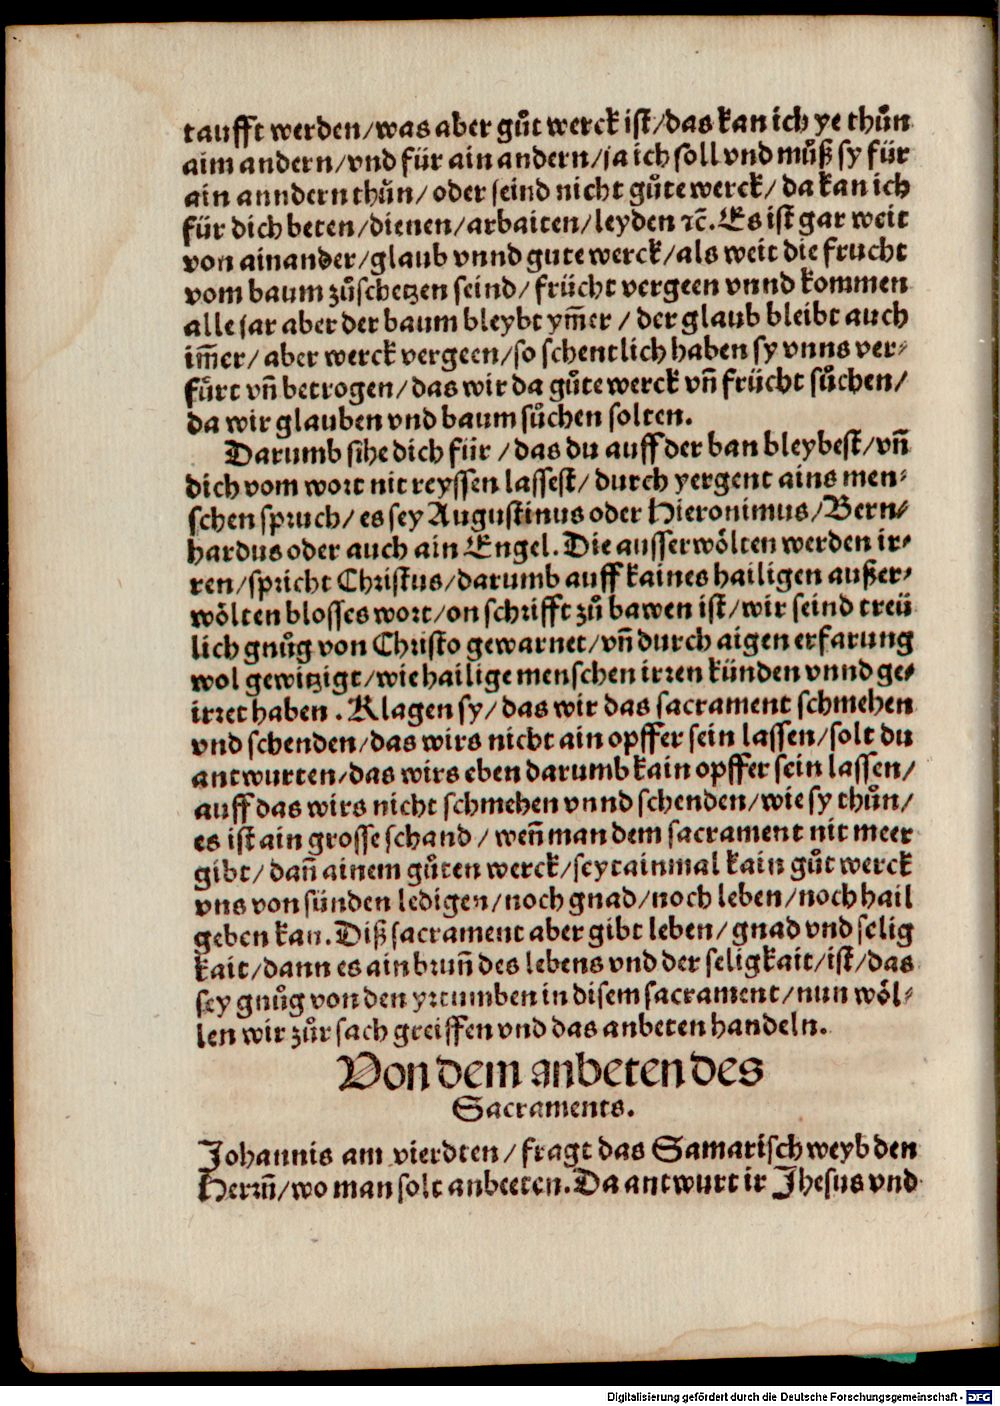 taufft werden/was aber gůt werck ist/das kan ich ye thůn
aim andern/vnd für ain andern/ja ich soll vnd můß sy für
ain anndern thůn/ oder seind nicht gůte werck/ da kan ich
für dich beten/dienen/arbaiten/leyden ꝛc̃. Es ist gar weit
von ainander/glaub vnnd gute werck/als weit die frucht
vom baum zůschetzen seind/ frücht vergeen vnnd kommen
alle jar aber der baum bleybt ym̃er / der glaub bleibt auch
im̃er/ aber werck vergeen/so schentlich haben sy vnns ver⸗
fůrt vñ betrogen/das wir da gůte werck vñ frücht sůchen/
da wir glauben vnd baum sůchen solten.
Darumb sihe dich für /das du auff der ban bleybest/vñ
dich vom wort nit reyssen lassest/ durch yergent ains men⸗
schen spruch/ es sey Augustinus oder Hieronimus/Bern⸗
hardus oder auch ain Engel. Die ausserwölten werden ir⸗
ren/spricht Christus/darumb auff kaines hailigen außer⸗
wölten blosses wort/on schrifft zů bawen ist/wir seind treü
lich gnůg von Christo gewarnet/vñ durch aigen erfarung
wol gewitzigt/wie hailige menschen irren künden vnnd ge⸗
irret haben . Klagen sy/das wir das sacrament schmehen
vnd schenden/das wirs nicht ain opffer sein lassen/solt du
antwurten/das wirs eben darumb kain opffer sein lassen/
auff das wirs nicht schmehen vnnd schenden/wie sy thůn/
es ist ain grosse schand / weñ man dem sacrament nit meer
gibt/ dañ ainem gůten werck/seytainmal kain gůt werck
vns von sünden ledigen/noch gnad/noch leben/noch hail
geben kan. Diß sacrament aber gibt leben/ gnad vnd selig
kait/dann es ain bruñ des lebens vnd der seligkait/ist/das
sey gnůg von den yrtumben in disem sacrament/nun wöl⸗
len wir zůr sach greiffen vnd das anbeten handeln.
Von dem anbeten des
Sacraments.
Johannis am vierdten/fragt das Samarisch weyb den
Herrn̄/wo man solt anbeeten. Da antwurt ir Jhesus vnd
Digitalisierung gefördert durch die Deutsche Forschungsgemeinschaft - DFG